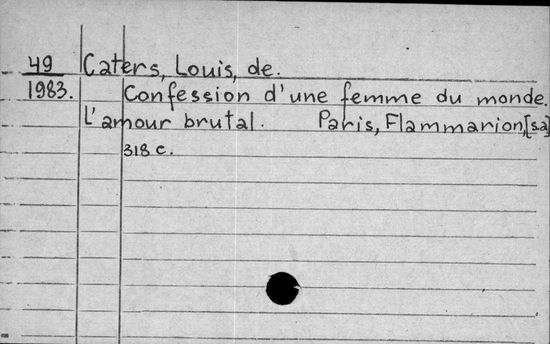 49
1983.
Caters, Louis, de.
Confession d'une femme du monde.
L'amour brutal. Paris, Flammarion, [s.a]
318 c.